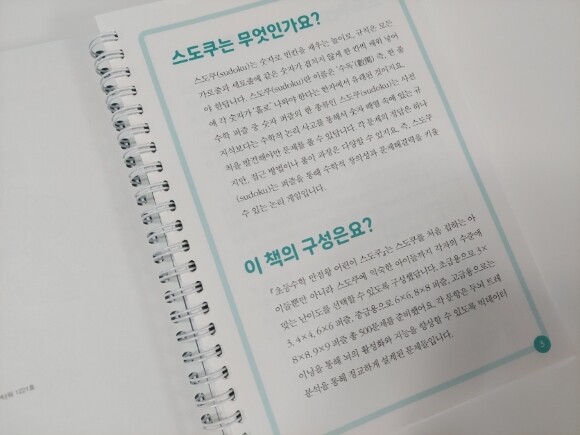 스도쿠는 무엇인가요?
스도쿠(sudoku)는 숫자로 빈칸을 채우는 놀이로, 규칙은 모든
가로줄과 세로줄에 같은 숫자가 겹치지 않게 한 번씩 채워 넣어
야 한답니다. 스도쿠(sudoku)란 이름은 '수독'(數獨) 즉, 한 줄
에 각 숫자가 '홀로' 나와야 한다는 한자에서 유래된 것이지요.
수학 퍼즐 중 숫자 퍼즐의 한 종류인 스도쿠(sudoku)는 사전
지식보다는 수학적 논리 사고를 통해서 숫자 배열 속에 있는 규
칙을 발견해야만 문제를 풀 수 있답니다. 각 문제의 정답은 하나
지만, 접근 방법이나 풀이 과정은 다양할 수 있지요. 즉, 스도쿠
(sudoku)는 퍼즐을 통해 수학적 창의성과 문제해결력을 키울
수 있는 논리 게임입니다.
이 책의 구성은요?
『초등수학 만점왕 어린이 스도쿠』는 스도쿠를 처음 접하는 아
이들뿐만 아니라 스도쿠에 익숙한 아이들까지 각자의 수준에
맞는 난이도를 선택할 수 있도록 구성했답니다. 초급용으로 3×
3, 4×4, 6×6 퍼즐, 중급용으로 6×6, 8×8 퍼즐, 고급용으로는
8×8, 9×9 퍼즐 총 500문제를 준비했어요. 각 문항은 두뇌 트레
이닝을 통해 뇌의 활성화와 지능을 향상할 수 있도록 빅데이터
분석을 통해 정교하게 설계된 문제들입니다.
5
1221호